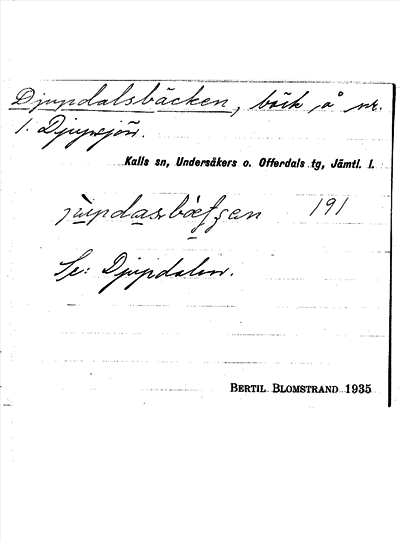 Djupdalsbäcken, bäck, å nr.
1. Djupsjön.
Kalls sn, Undersåkers o. Offerdals tg, Jämtl. l.
191
Se: Djupdalen.
BERTIL BLOMSTRAND 1935